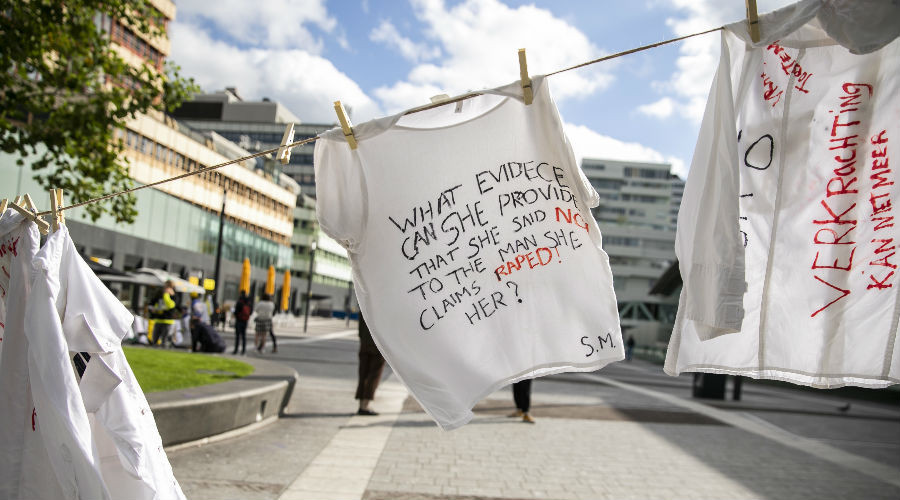 WHAT EVIDECE
CAN SHE PROVIDE
THAT SHE SAID NO
TO THE MAN SHE
CLAIMS RAPED!
HER?
S.M.
VERKRACHTING
KAN NET MEER